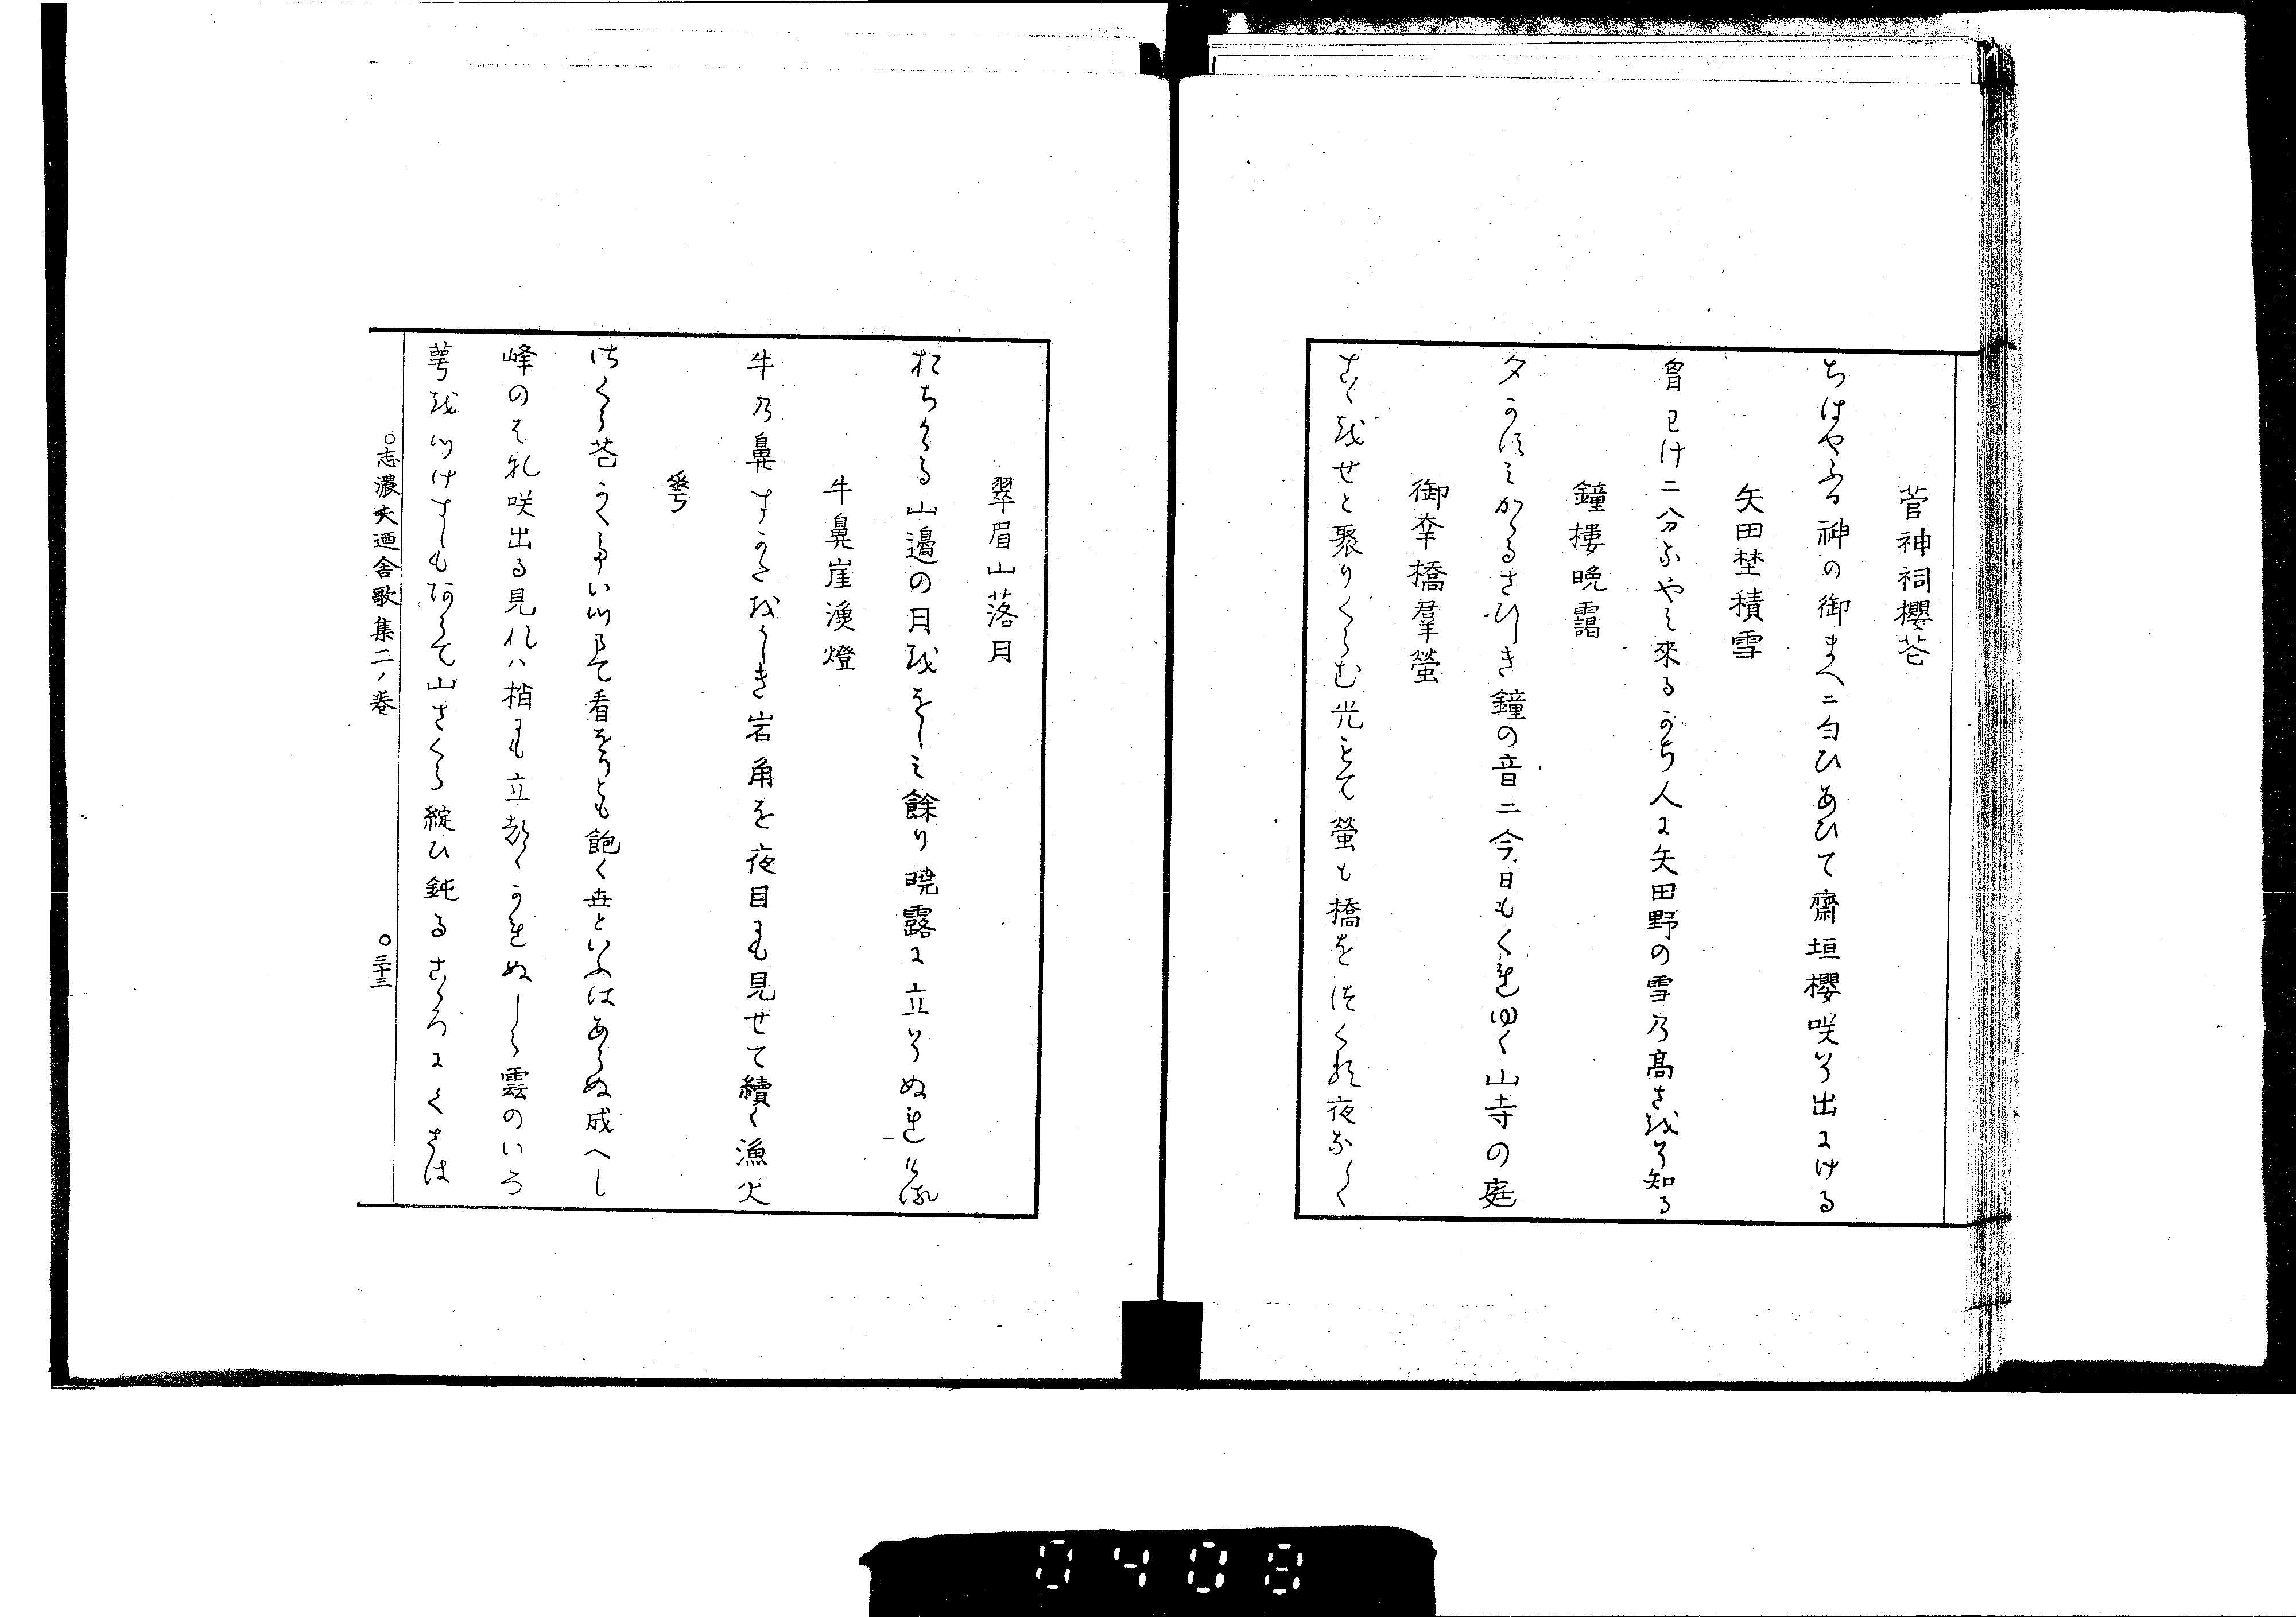 菅神祠櫻花
ちはやふる神の御まへニ匂ひあひて齋垣櫻咲そ出にける
矢田埜積雪
曾己はけニ分なやミ來るかち人に矢田野の雪乃高さ越そ知る
鐘樓晩靄
夕かすミかゝるさひしき鐘の音ニ今日もくれゆく山寺の庭
御幸橋羣螢
こゝ越せと聚りくらむ光もて螢も橋をつくる夜なく
翠眉山落月
おちかゝる山邉の月越をしミ餘り曉露に立そぬれける
牛鼻崖漁燈
牛乃鼻すかたをかしき岩角を夜目にも見せて續く漁火
櫻
さくら花かく亭い川まて看るとも飽く世といふはあらぬ成へし
峰のそれ咲出る見れハ梢にも立都ゝかれぬしら雲のいろ
萼越つけすしもあらて山さくら綻ひ鈍るこゝろにくさは
○志濃夫廼舍歌集二ノ卷 ○三十三
0408